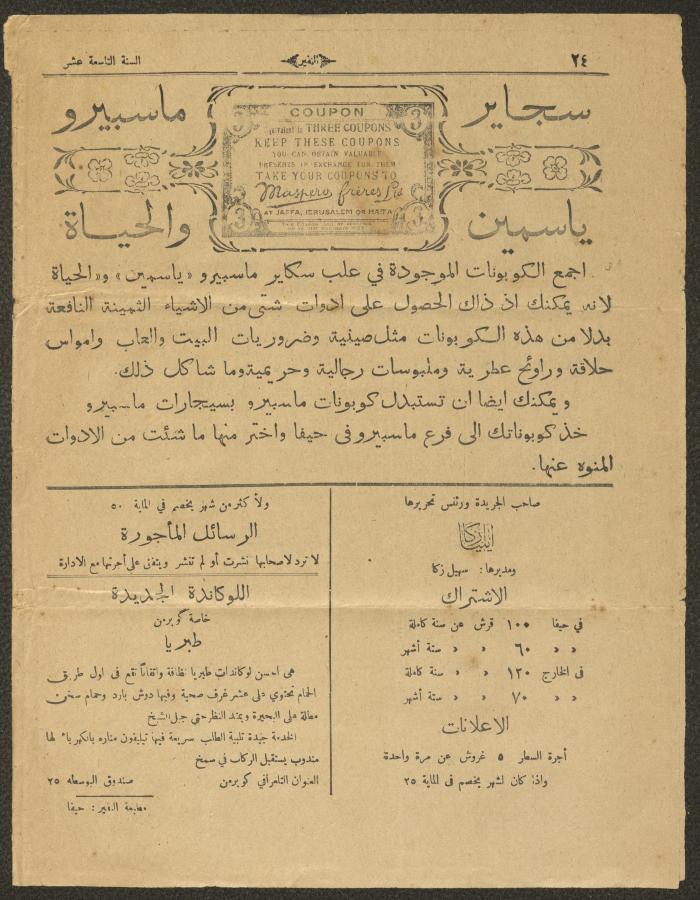 ٢٤
النفير
السنة التاسعة عشر
سجاير
ماسبيرو
ياسمين
والحياة
COUPON
3
3
THREE COUPONS
KEEP THESE COUPONS
YOU CAN OBTAIN VALUABLE
PRESENTS IN EXCHANGE FOR THEM
TAKE YOUR COUPONS TO
Maspero Frères Ltd
AT JAFFA, JERUSALEM OR HAIFA
3
3
اجمع الكوبونات الموجودة في علب سكاير ماسبيرو «ياسمين» و«الحياة
لانه يمكنك اذ ذاك الحصول على ادوات شتى من الاشياء الثمينة النافعة
بدلا من هذه الكوبونات مثل صينية وضروريات البيت والعاب وامواس
حلاقة وروائح عطرية وملبوسات رجالية وحريمية وما شاكل ذلك.
ويمكنك ايضا ان تستبدل كوبونات ماسبيرو بسيجارات ماسبيرو
خذ كوبوناتك الى فرع ماسبيرو في حيفا واختر منها ما شئت من الادوات
المنوه عنها.
صاحب الجريدة ورئس تحريرها
ايليا زكا
ومديرها: سهيل زكا
الاشتراك
في حيفا ١٠٠ قرش عن سنة كاملة
« « ٦٠ « « ستة أشهر
في الخارج ١٢٠ « « سنة كاملة
« « ٧٠ « « ستة أشهر
الاعلانات
أجرة السطر ٥ غروش عن مرة واحدة
واذا كان لشهر يخصم في الماية ٢٥
ولأكثر من شهر يخصم في الماية ٥٠
الرسائل المأجورة
لا ترد لاصحابها نشرت أو لم تنشر ويتفق على أجرتها مع الادارة
اللوكاندة الجديدة
خاصة كوبرمن
طبريا
هي احسن لوكاندات طبريا نظافة واتقاناً تقع في اول طريق
الحمام تحتوي على عشر غرف صحية وفيها دوش بارد وحمام سخن
مطلة على البحيرة ويمتد النظر حتى جبل الشيخ
الخدمة جيدة تلبية الطلب سريعة فيها تيليفون مناره بالكهرباء لها
مندوب يستقبل الركاب في سمخ
العنوان التلغرافي كوبرمن صندوق البوسطه ٢٥
مطبعة النفير: حيفا